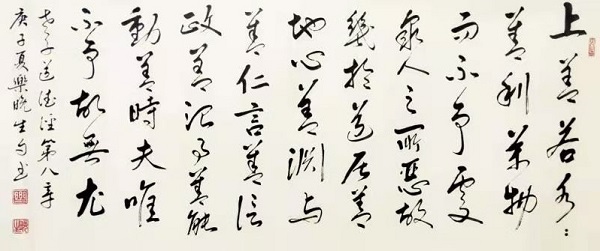 上善若水〻
善利萬物
而不争處
衆人之所惡故
幾於道居善
地心善淵與
善仁言善信
政善治事善能
動善時夫唯
不争故無尤
老子道德經第八章
庚子夏樂曉生書